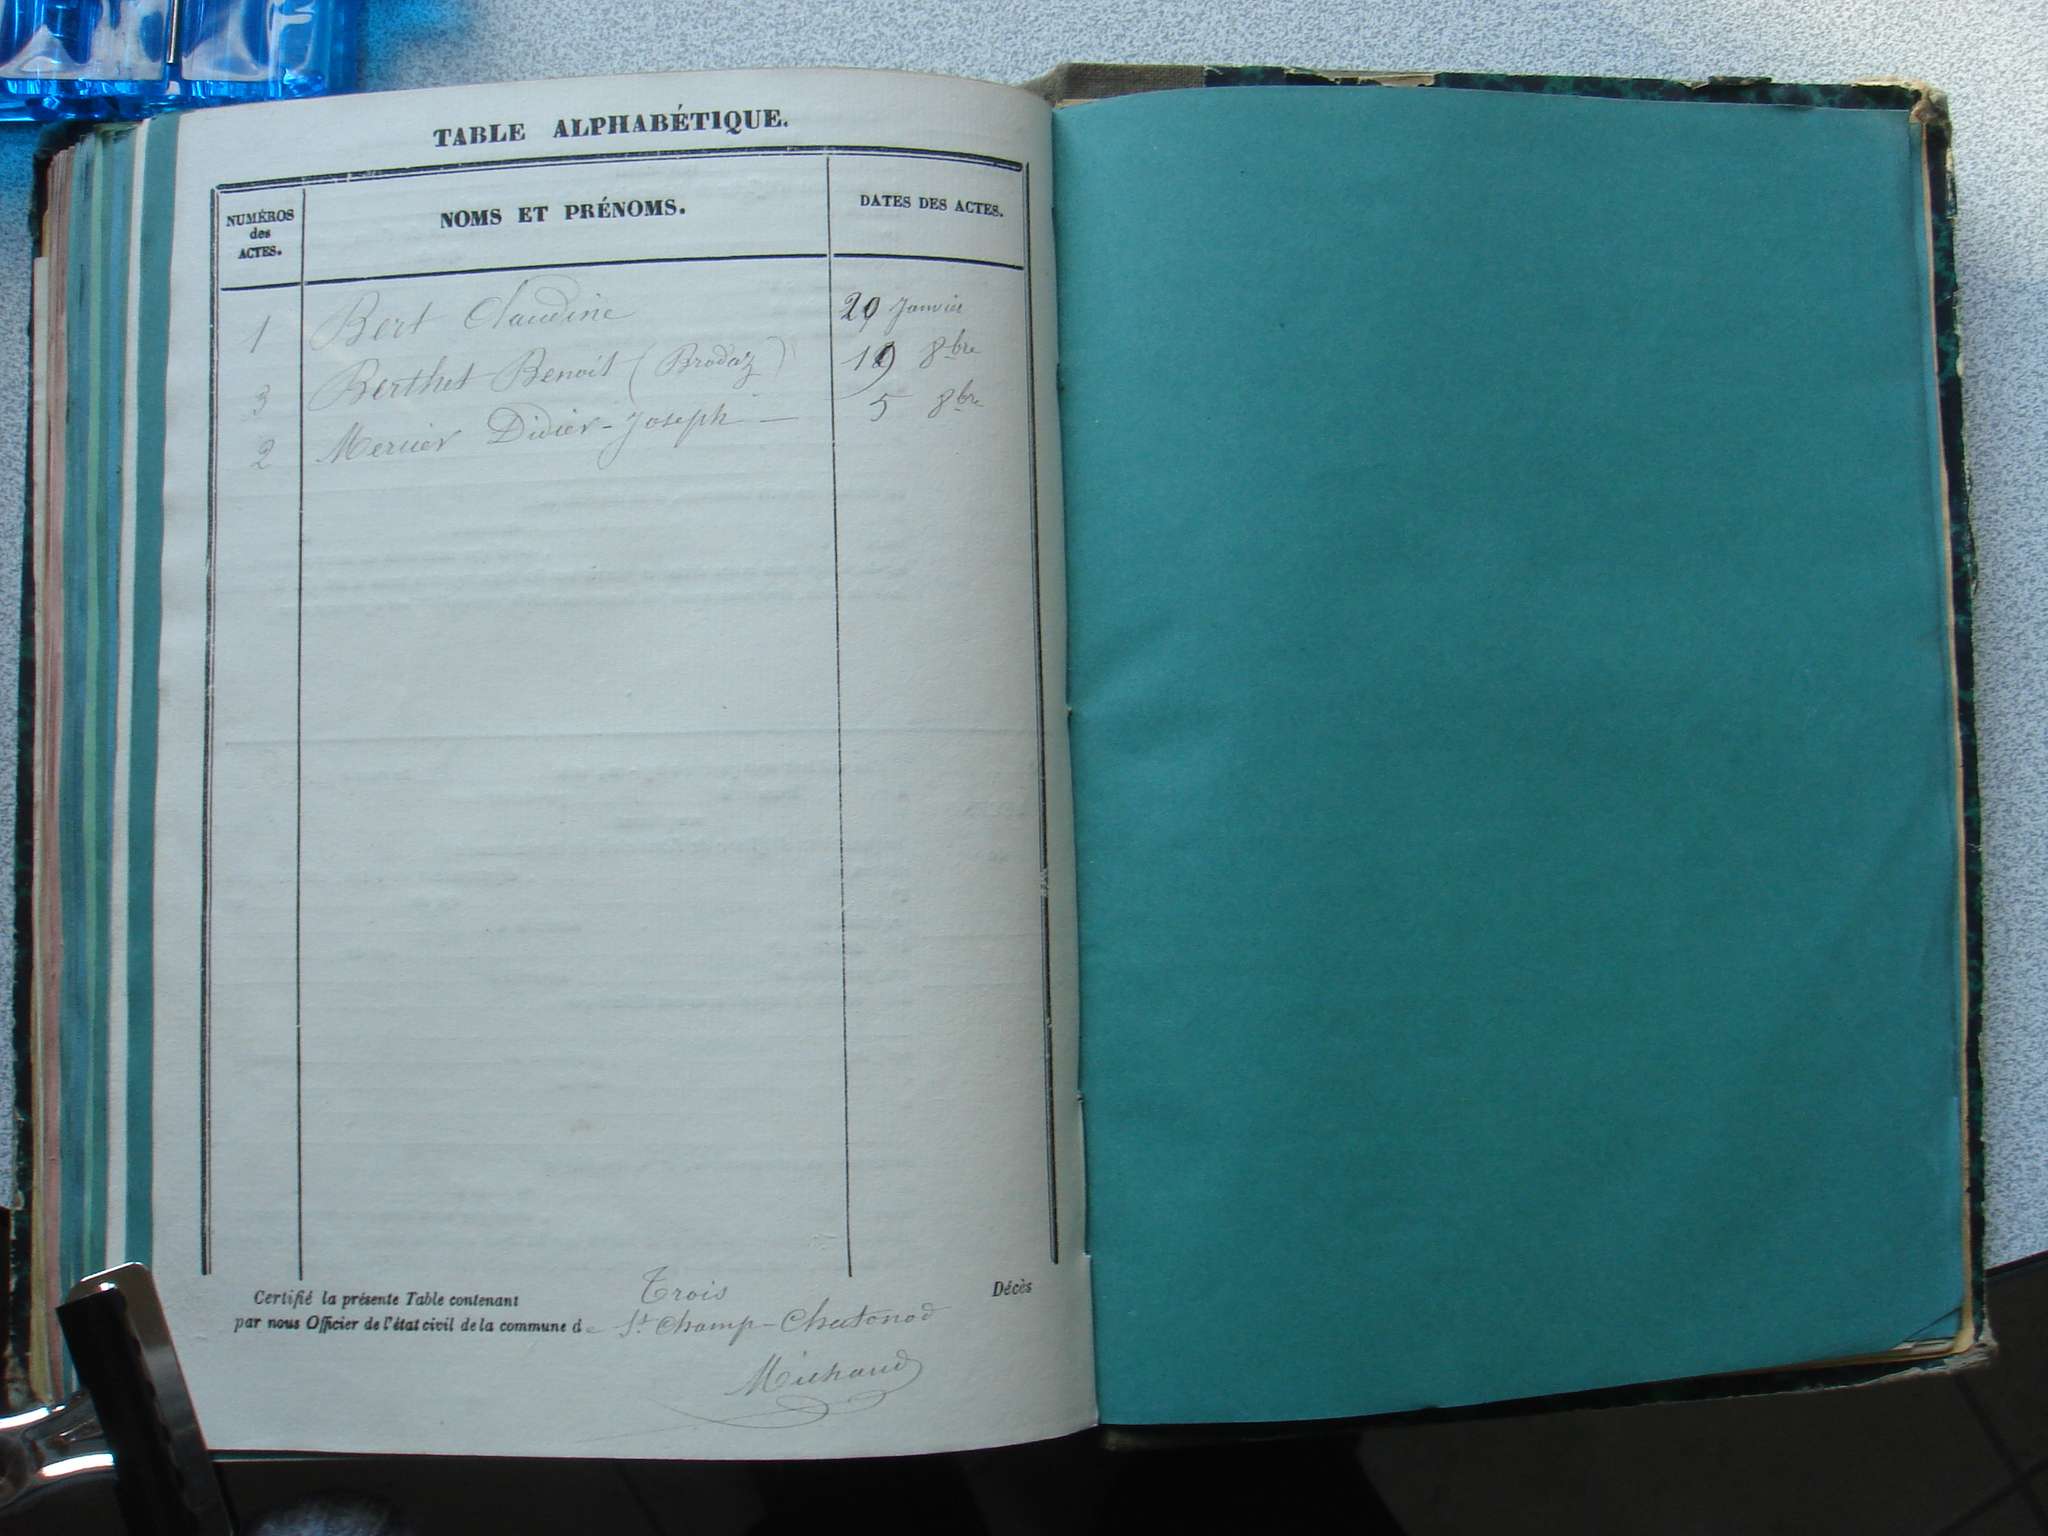 TABLE ALPHABÉTIQUE.
NUMÉROS des ACTES.
NOMS ET PRÉNOMS.
DATES DES ACTES.
1 Bert Claudine 29 Janvier
3 Berthet Benoit (Brodaz) 19 8bre
2 Mercier Didier-Joseph — 5 8bre
Certifié la présente Table contenant Trois Décès
par nous Officier de l'état civil de la commune de St Champ-Chatonod
Michaud